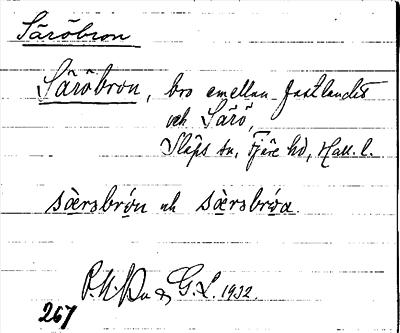 Säröbron
Säröbron, bro emellan fastlandet
och Särö,
Släps sn, Fjäre hd, Hall. l.
särsbrón ok särsbróa
G. L. 1932.
267